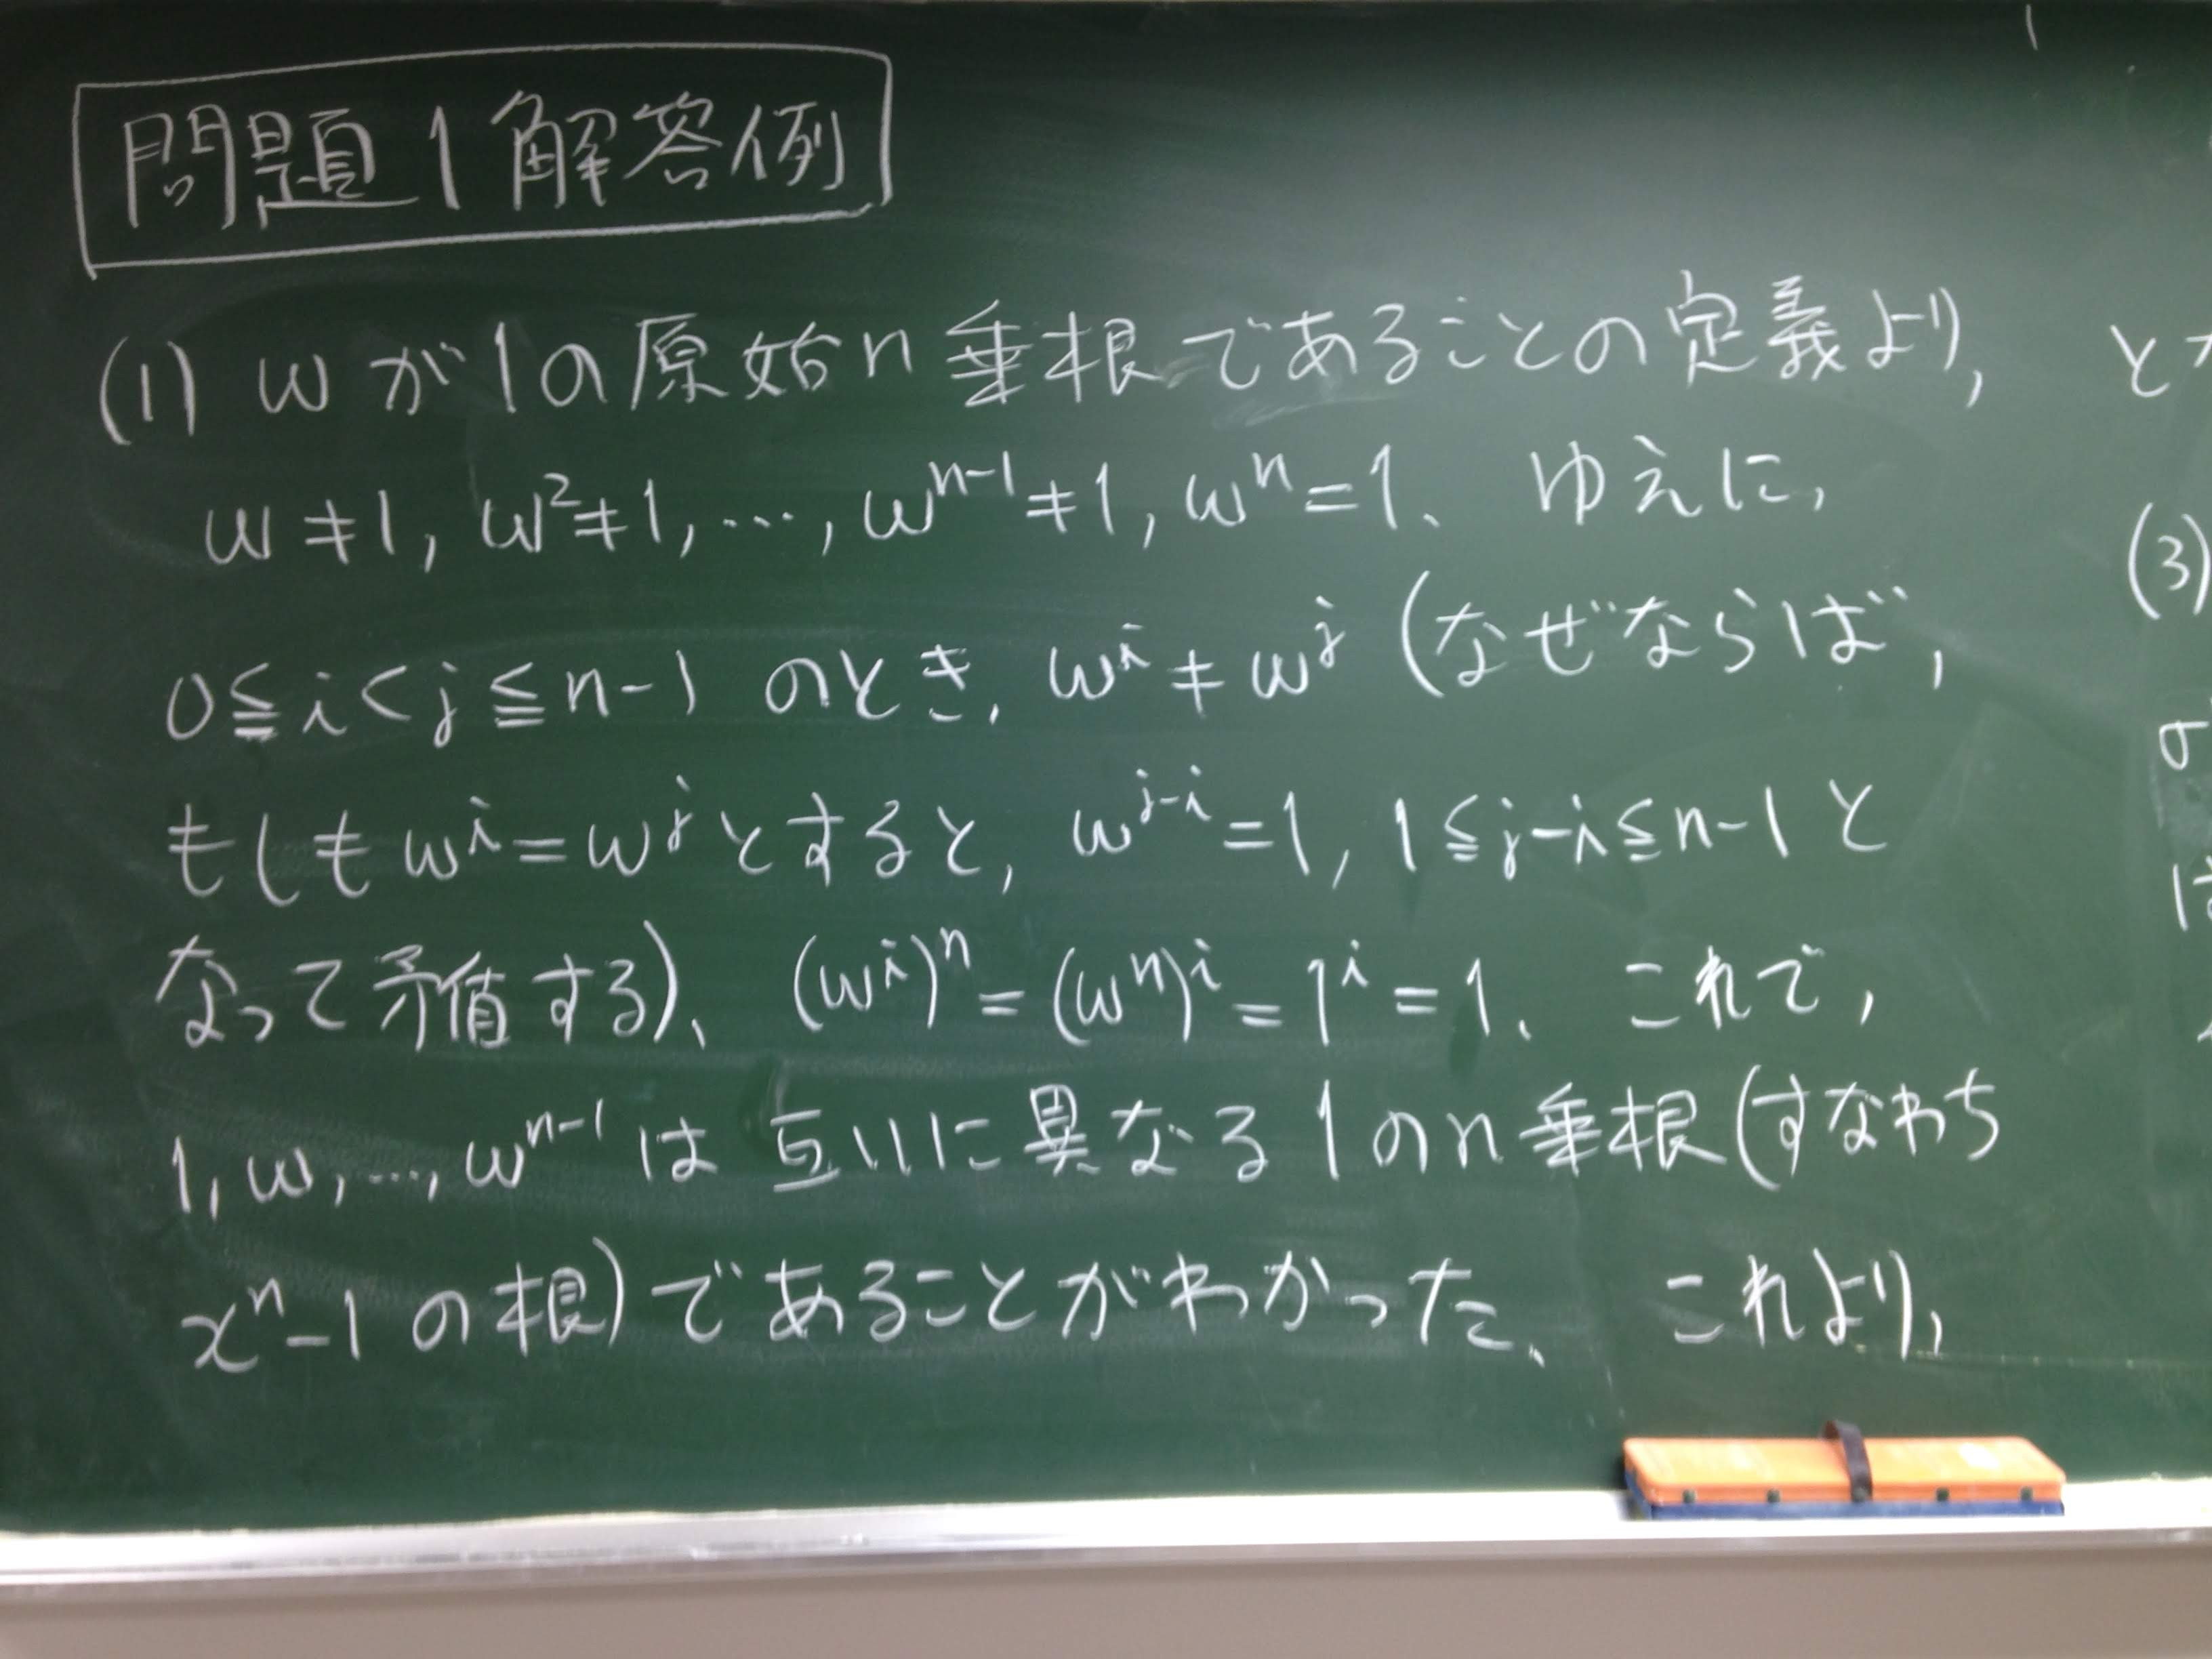 問題1解答例
(1) ωが1の原始n乗根であることの定義より, と
ω≠1, ω²≠1, …, ωⁿ⁻¹≠1, ωⁿ=1. ゆえに,
(3)
0≦i<j≦n-1 のとき, ωⁱ≠ωʲ (なぜならば,
σ
もしも ωⁱ=ωʲとすると, ωʲ⁻ⁱ=1, 1≦j-i≦n-1 と
は
なって矛盾する). (ωⁱ)ⁿ=(ωⁿ)ⁱ=1ⁱ=1. これで,
1, ω, …, ωⁿ⁻¹ は互いに異なる1のn乗根(すなわち
xⁿ-1の根)であることがわかった. これより,